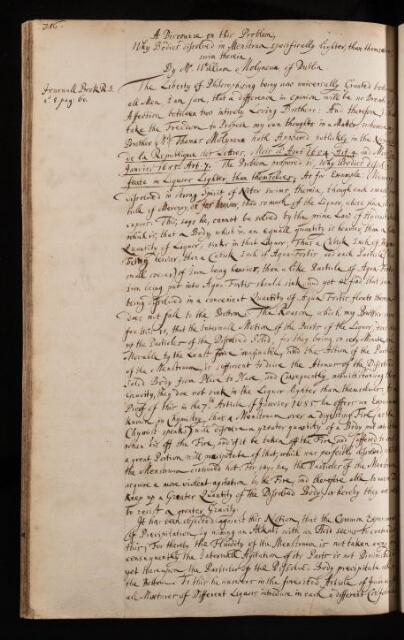 216.
A Discourse on this Problem,
Why Bodies dissolved in Menstrua specifically lighter, than themselves
swim therein.
By Mr. William Molyneux of Dublin
Journall Book R.S.
pag. 60.
The Liberty of Philosophising being now universally Granted between
all Men, I am sure, that a difference in opinion will be no Breach of
Affection between two intirely Loving Brothers: And therefore I
take the Freedom to Propose my own thoughts in a Matter, wherein
Brother Mr. Thomas Molyneux hath Appeared publickly in the
de la Republique des Lettres, Mois d'Aout 1684 Art. 4. and
Janvier 1685 Art. 7. The Problem proposed is, Why Bodies dissolved
float in Liquors Lighter, than themselves; As for Example Mercury
dissolved in strong Spirit of Niter swims therein, though each small
of Mercury be far heavier, than so much of the Liquor, whose place
. This, says he, cannot be solved by the prime Law of
which is, that a Body, which in an equall quantity is heavier, than a
Quantity of Liquor, sinks in that Liquor; Thus a Cubick Inch of Iron
being heavier, than a Cubick Inch of Aqua Fortis and each Particle
small of Iron being heavier, than a like Particle of Aqua Fortis
Iron being put into Aqua Fortis should sink and yet we find that Iron
being dissolved in a convenient Quantity of Aqua Fortis floats therein
does not fall to the Bottom. The Reason, which my Brother
for this, is, that the Internall Motion of the Parts of the Liquor,
up the Particles of the Dissolved Solid, for they being so very Minute
Movable by the least Force imaginable, and the Action of the Particles
of the Menstruum is sufficient to drive the Atomes of the Dissolved
Solid Body from Place to Place, and Consequently notwithstanding
Gravity, they doe not sink in the Liquor lighter than themselves.
Proof of this in the 7th Article of Janvier 1685 he offers an Experiment
known in Chymistry, that a Menstruum over a digesting Fire,
Chymists speak) will dissolve a greater quantity of a Body
when off the Fire, and if it be taken off the Fire, and suffered to
a great Portion will precipitate of that, which was perfectly dissolved
the Menstruum continued hot. For, say he, the Particles of the Menstruum
acquire a more violent agitation by the Fire, and therefore able to
keep up a Greater Quantity of the Dissolved Body, for thereby they
to resist a greater Gravity.
It has been objected against this Notion, that the Common Experiment
of Precipitation by mixing an Alkali with an Acid seems to
this; For thereby the Fluidity of the Menstruum is not taken away
consequently the Internall Agitation of its Parts is not Diminished
yet thereupon the Particles of the Dissolved Body precipitate
the Bottom. To this he answers in the foresaid Article of Janvier
all Mixtures of Different Liquors introduce in each a different